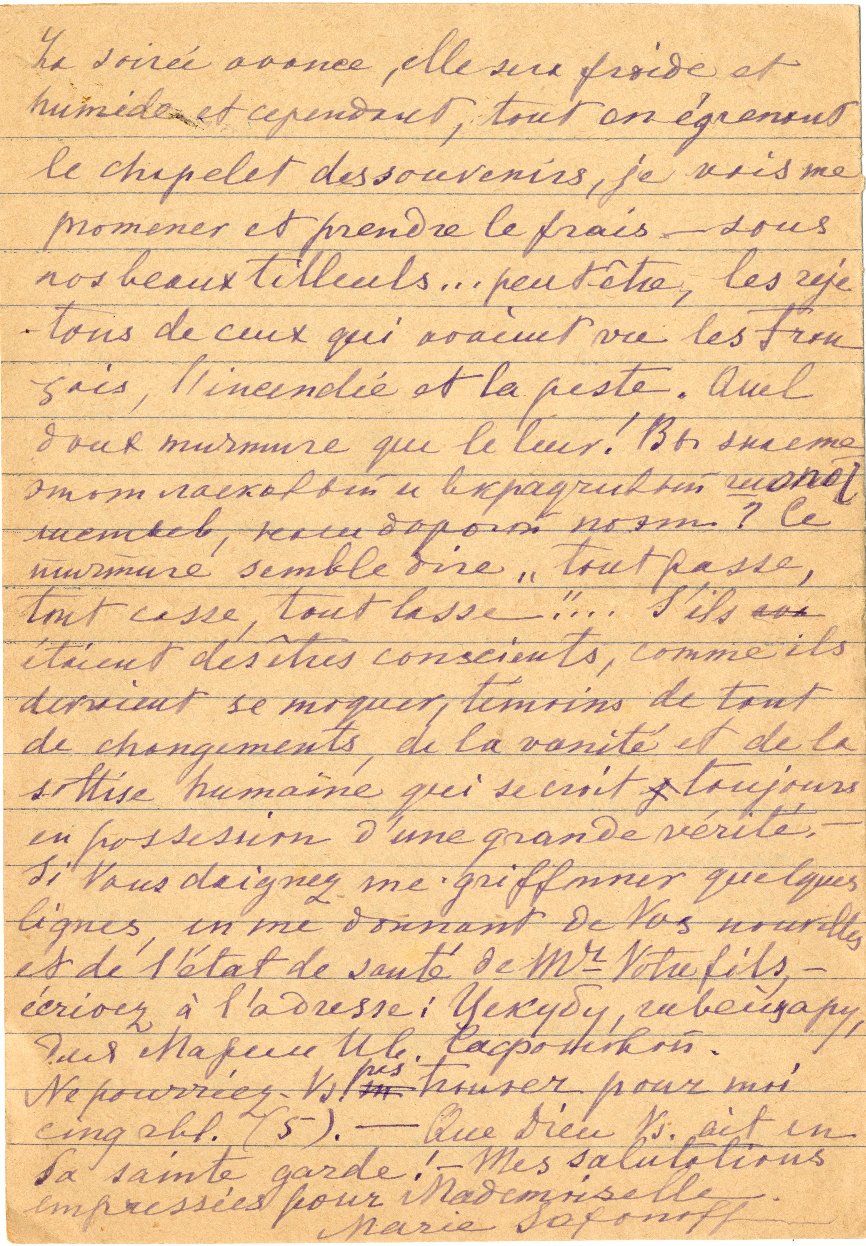 La soirée avance, elle sera froide et
humide et cependant, tout en égrenant
le chapelet des souvenirs, je vais me
promener et prendre le frais — sous
nos beaux tilleuls... peut être, les reje
tons de ceux qui avaient vu les Fran
çais, l'incendie et la peste. Quel
doux murmure que le leur! Вы знаете
этот ласковый и вкрадчивый
шелест, мой дорогой поэт? Ce
murmure semble dire „tout passe,
tout casse, tout lasse"... S'ils
étaient des êtres conscients, comme ils
devraient se moquer, témoins de tant
de changements, de la vanité et de la
sottise humaine qui se croit toujours
en possession d'une grande vérité. —
Si Vous daignez me griffonner quelques
lignes, en me donnant de Vos nouvelles
et de l'état de santé de Mr Votre fils, —
écrivez à l'adresse: Цекубу, швейцару,
для Марии Ив. Сафоновой.
Ne pourriez-Vs pas trouver pour moi
cinq rbl. (5). — Que Dieu Vs. ait en
Sa sainte garde! — Mes salutations
empressées pour Mademoiselle.
Marie Safonoff